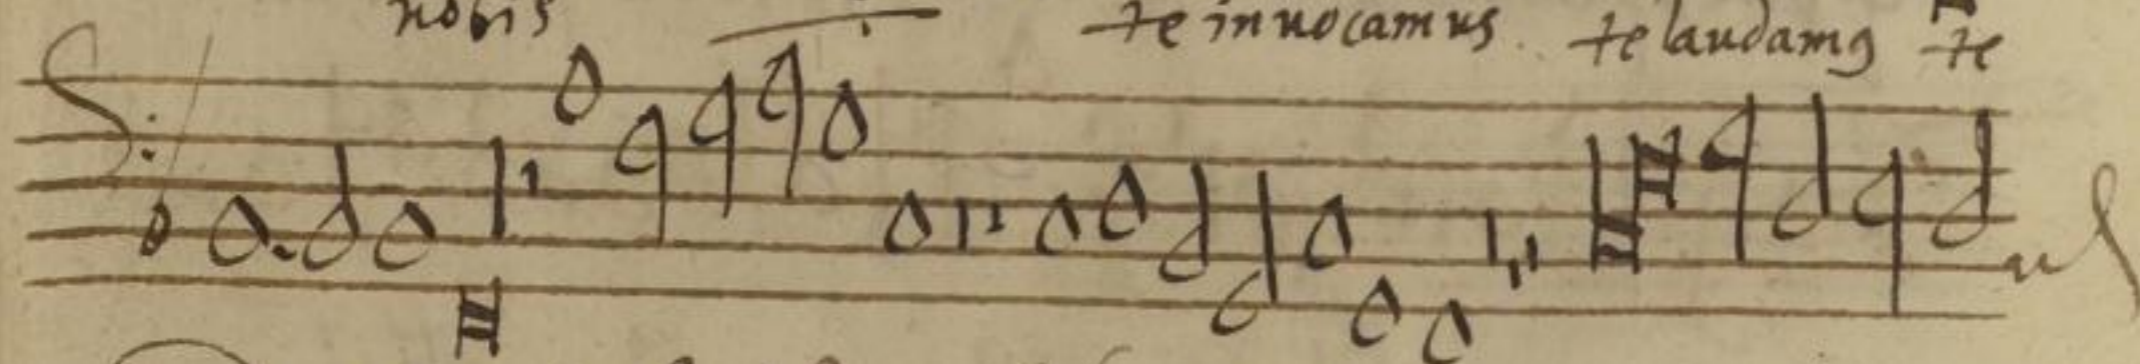 nobis te invocamus. te laudamꝰ te